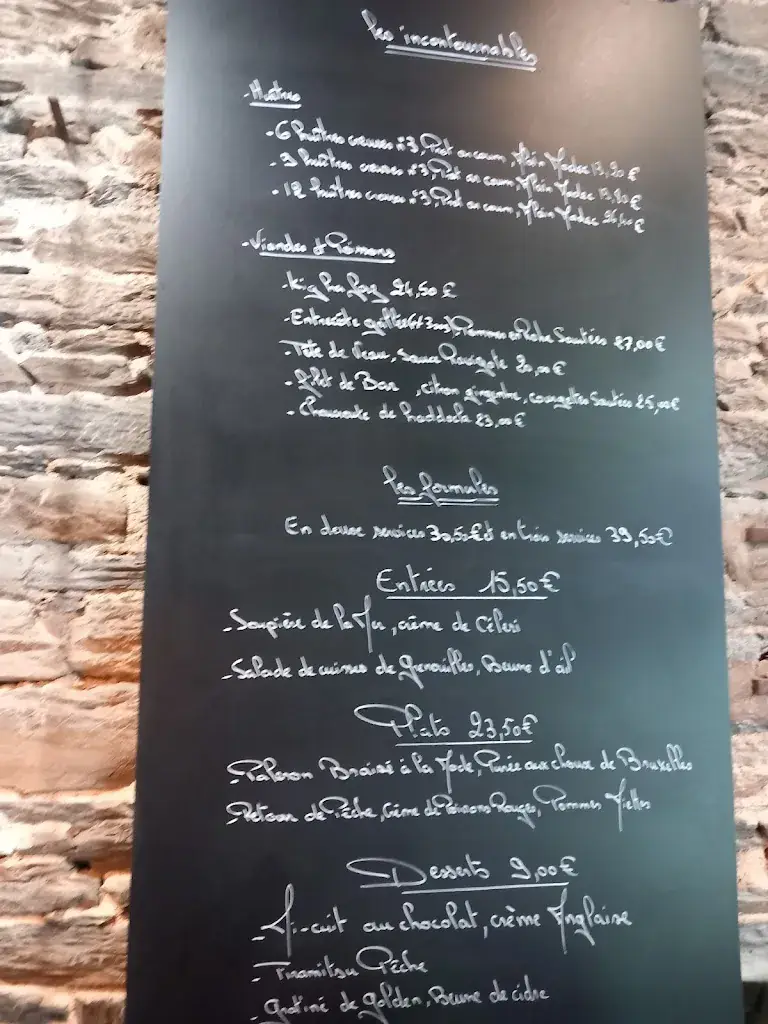 les incontournables
- Huîtres
- 6 huîtres creuses n°3, Prat ar coum, Alain Madec 13,20 €
- 9 huîtres creuses n°3, Prat ar coum, Alain Madec 19,80 €
- 12 huîtres creuses n°3, Prat ar coum, Alain Madec 26,40 €
- Viandes et Poissons
- Kig ha farz 24,50 €
- Entrecôte, Pommes de terre Sautées 27,00 €
- Tête de Veau, Sauce Ravigote 20,00 €
- filet de Bar, citron gingembre, courgettes Sautées 25,00 €
- Choucroute de haddock 23,00 €
les formules
En deux services 30,50 € et en trois services 39,50 €
Entrées 15,50 €
- Soupière de la Mer, crème de Céleri
- Salade de cuisses de grenouilles, Beurre d'ail
Plats 23,50 €
- Paleron Braisé à la Mode, Purée aux choux de Bruxelles
- Retour de Pêche, Crème de Poivrons Rouges, Pommes
Desserts 9,00 €
- Mi-cuit au chocolat, crème Anglaise
- Tiramitsu Pêche
- gratiné de golden, Beurre de cidre